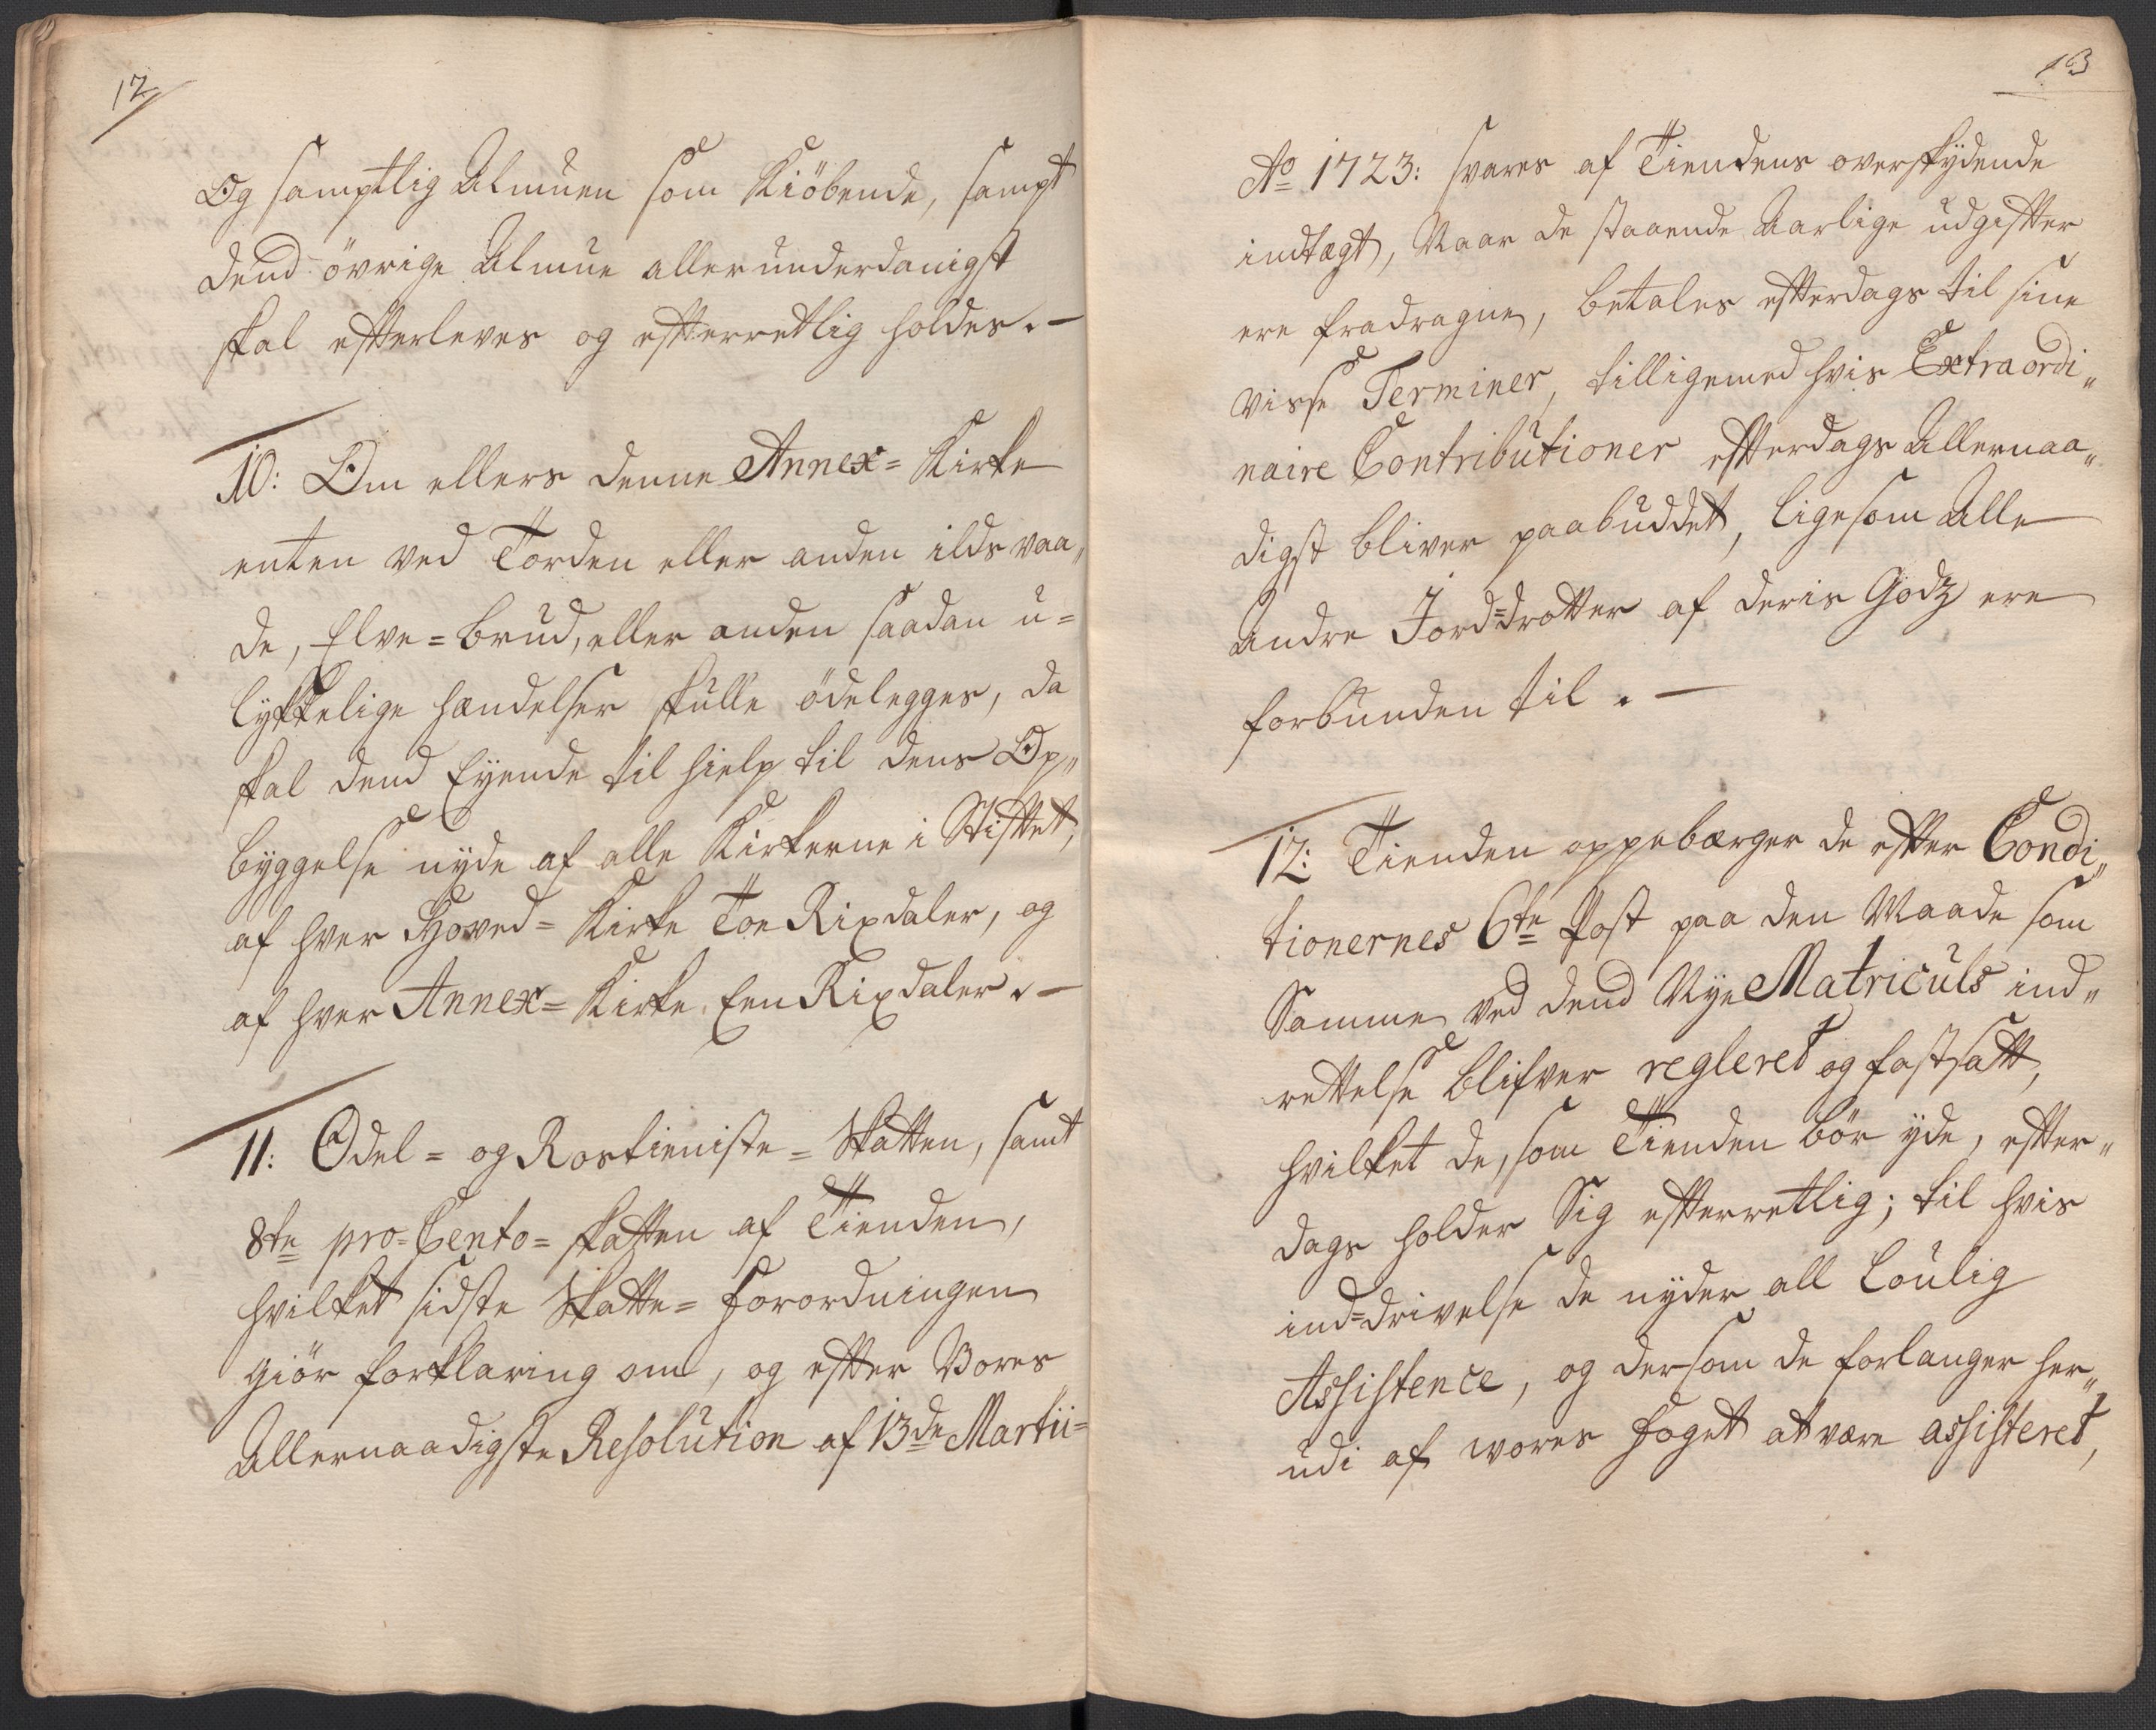 12
Og samptlig Almuen som Kiöbende, sampt
dend övrige Almue allerunderdanigst
skal efterleves og efterretlig holdes. –
10: Om ellers denne Annex= Kirke
enten ved Torden eller anden ilds vaa„
de, Elve=brud, eller anden saadan u=
lykkelige hændelser skulle ödelegges, da
skal dend Eyende til hielp til dens Op„
byggelse nyde af alle Kirkerne i Stiftet,
af hver Hoved= Kirke Toe Rixdaler, og
af hver Annex= Kirke Een Rixdaler. –
11: Odel= og Rostieniste= Skatten, samt
8te pro=Cento= skatten af Tienden,
hvilket sidste Skatte= Forordningen
giör forklaring om, og efter Vores
Allernaadigste Resolution af 13de Martii=
13
Ao 1723: svares af Tiendens overskydende
indtægt, Naar de staaende Aarlige udgifter
ere fradragne, betales efterdags til sine
visse Terminer, tilligemed hvis Extraordi„
naire Contributioner efterdags Allernaa„
digst bliver paabuddet, ligesom Alle
Andre Jord=drotter af deris Godz ere
forbunden til. –
12: Tienden oppebærger de efter Condi„
tionernes 6te Post paa den Maade som
Samme ved dend Nye Matriculs ind„
rettelse blifver regleret og fastsatt,
hvilket de, som Tienden bör yde, efter„
dags holder Sig efterretlig; til hvis
ind=drivelse de nyder all Loulig
Assistence, og dersom de forlanger her„
udi af vores Foget at være assisteret,